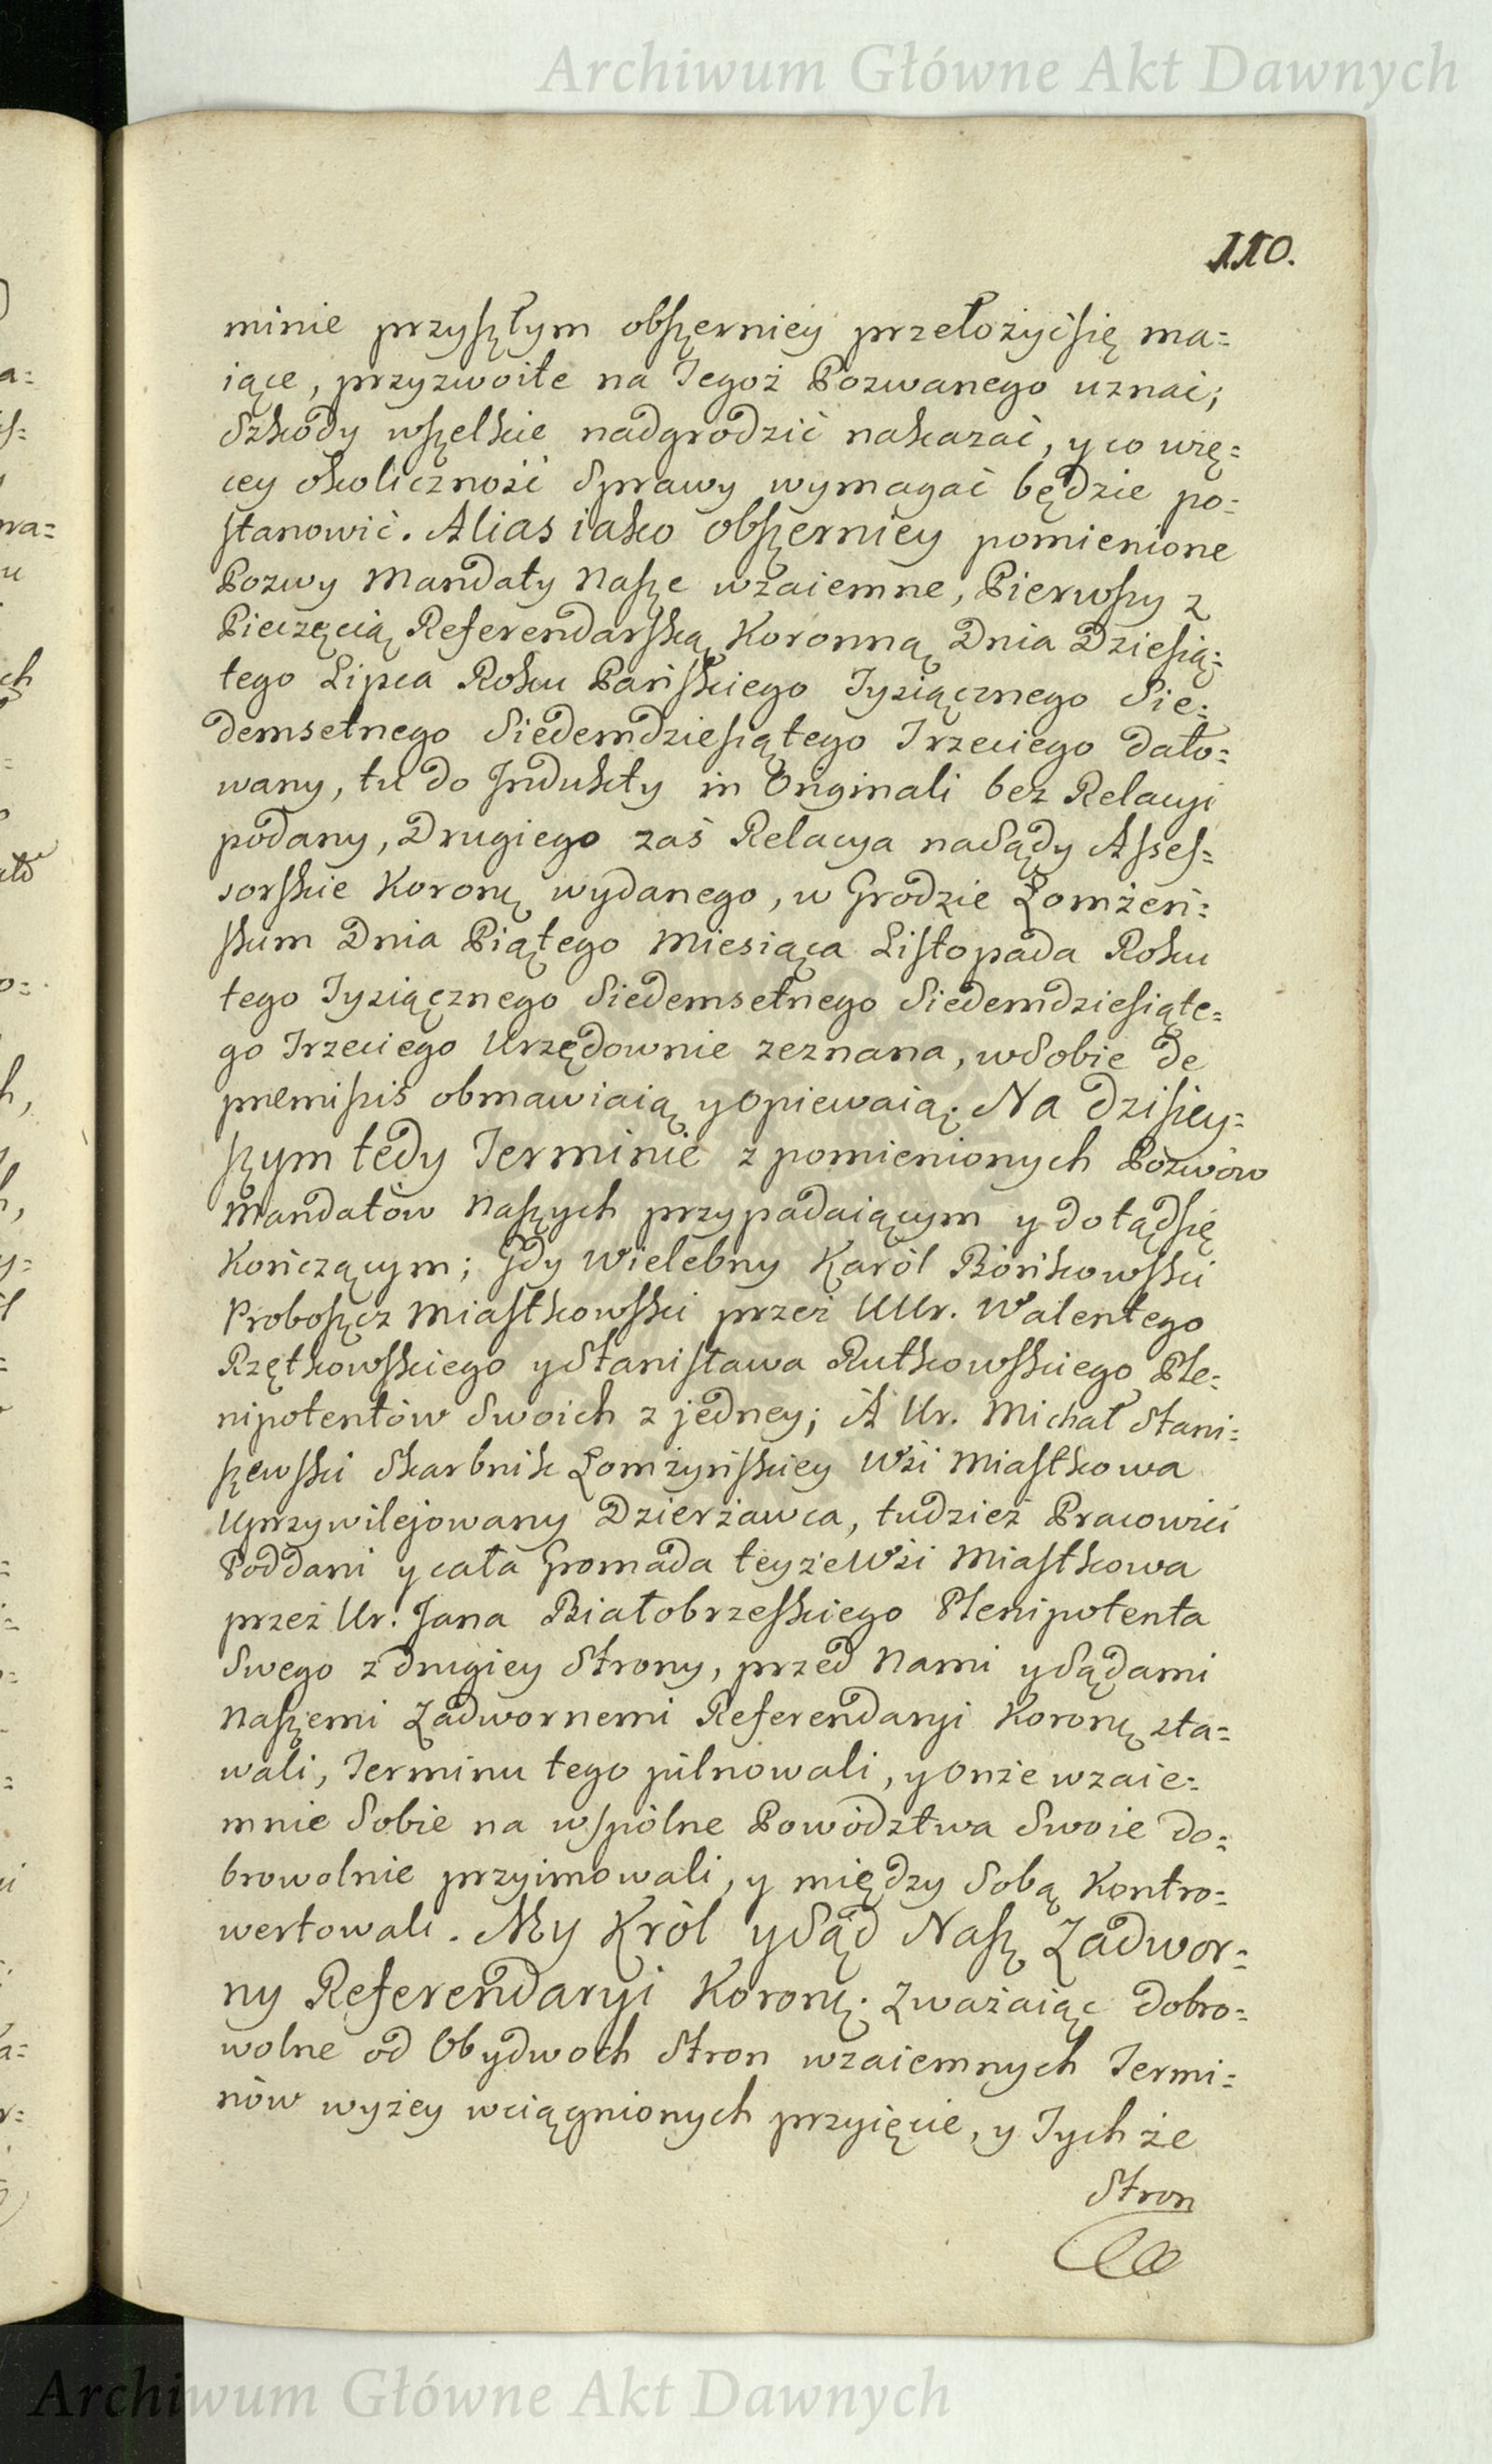 Archiwum Główne Akt Dawnych
110.
minie przyszłym obszerniey przełożyć się ma=
iące, przyzwoite na Tegoż Pozwanego uznać;
Szkody wszelkie nadgrodzić nakazać, y co wię=
cey okoliczność Sprawy wymagać będzie po=
stanowić. Alias iako obszerniey pomienione
Pozwy Mandaty Nasze wzaiemne, Pierwszy z
Pieczęcią Referendarską Koronną Dnia Dziesią=
tego Lipca Roku Pańskiego Tysiącznego Sie=
demsetnego Siedemdziesiątego Trzeciego dato=
wany, tu do Indukty in Originali bez Relacyi
podany, Drugiego zaś Relacya na Sądy Asses=
sorskie Koronę wydanego, w Grodzie Łomżeń=
skim Dnia Piątego Miesiąca Listopada Roku
tego Tysiącznego Siedemsetnego Siedemdziesiąte=
go Trzeciego Urzędownie zeznana, w Sobie de
premissis obmawiaią y opiewaią. Na dzisiey=
szym tedy Terminie z pomienionych Pozwów
Mandatów Naszych przypadaiącym y dotąd się
Kończącym; Gdy Wielebny Karól Bońkowski
Proboszcz Miastkowski przez UUr. Walentego
Rzętkowskiego y Stanisława Rutkowskiego Ple=
nipotentów Swoich z jedney; A Ur. Michał Stani=
szewski Skarbnik Łomżyńskiey Wsi Miastkowa
Uprzywilejowany Dzierżawca, tudzież Pracowici
Poddani y cała Gromada teyże Wsi Miastkowa
przez Ur. Jana Białobrzeskiego Plenipotenta
Swego z drugiey Strony, przed Nami y Sądami
Naszemi Zadwornemi Referendaryi Koronę sta=
wali, Terminu tego pilnowali, y Onże wzaie=
mnie Sobie na wspólne Powództwa Swoie do=
browolnie przyimowali, y między Sobą Kontro=
wertowali. My Król y Sąd Nasz Zadwor=
ny Referendaryi Koronę. Zważaiąc dobro=
wolne od Obydwoch Stron wzaiemnych Termi=
nów wyżey wciągnionych przyięcie, y Tychże
Stron
Archiwum Główne Akt Dawnych